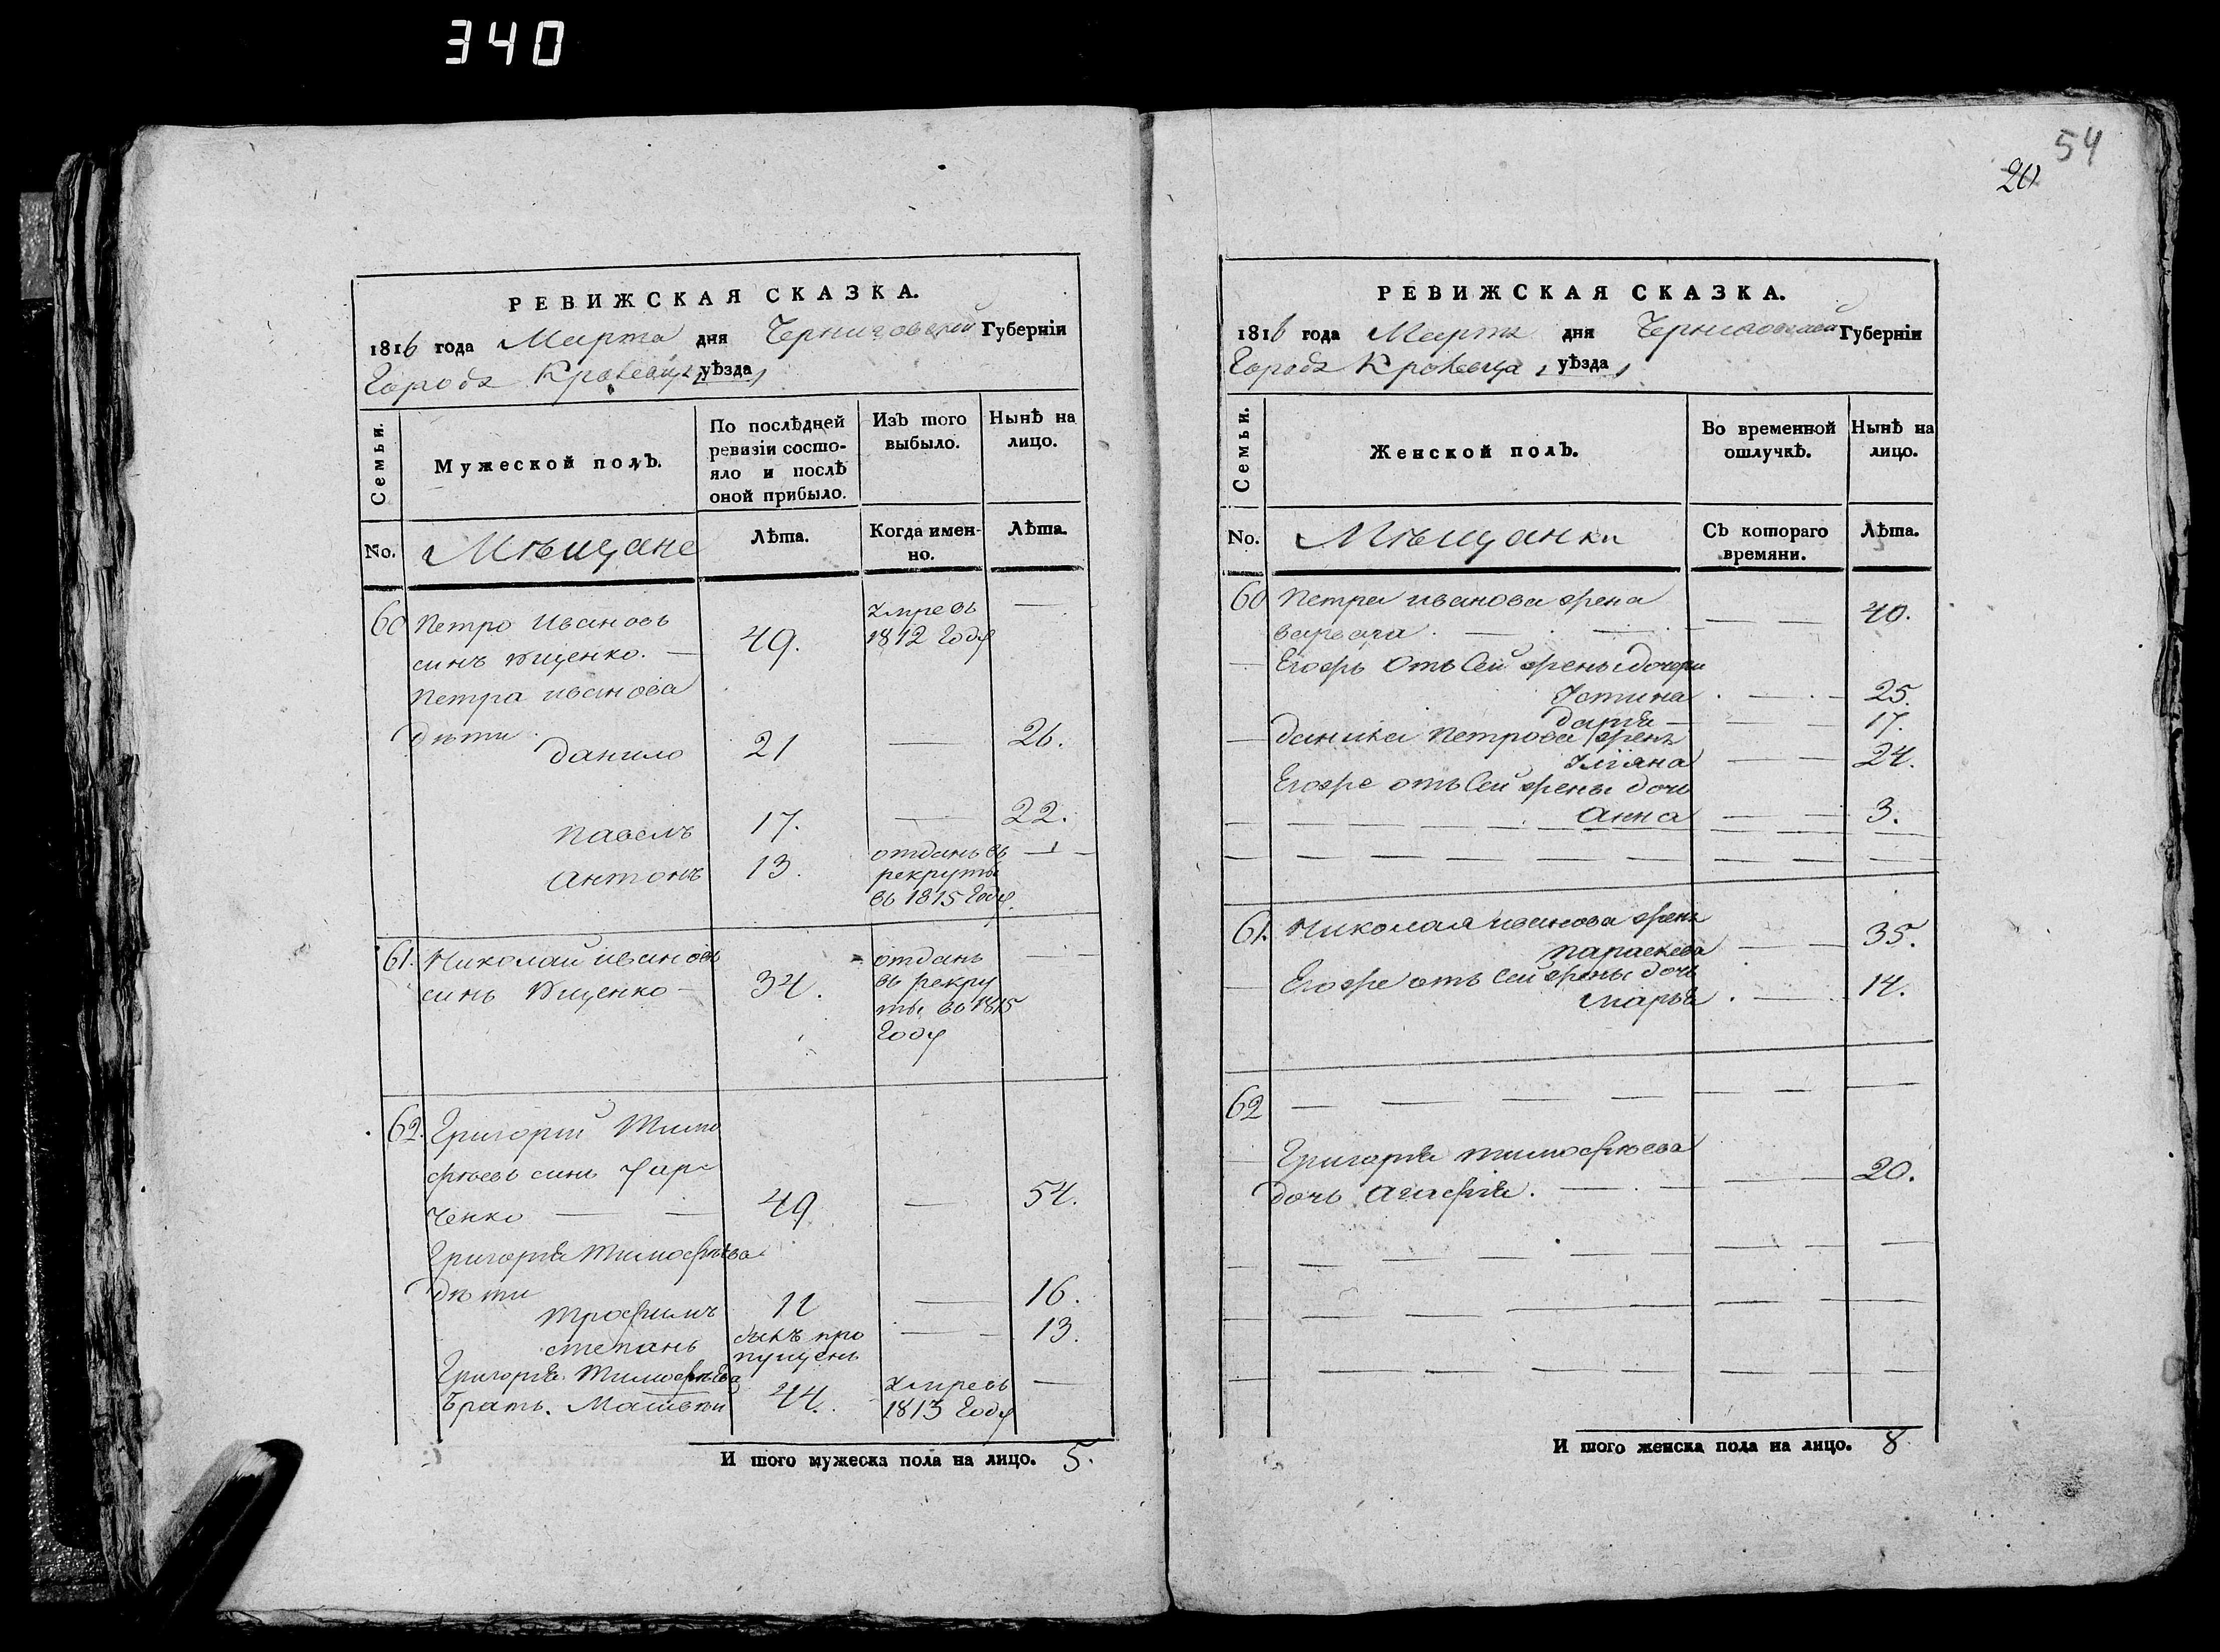 340
54
20
РЕВИЖСКАЯ СКАЗКА.
1816 года Марта дня Черниговской Губерніи
Города Кролевца, уѣзда,
Семьи.
Мужеской полъ.
По послѣдней
ревизіи состо-
яло и послѣ
оной прибыло.
Изъ того
выбыло.
Нынѣ на
лицо.
No.
Мѣщане
Лѣта.
Когда имен-
но.
Лѣта.
60 Петро Ивановъ
синъ Ищенко. —
49.
умре въ
1812 Году
—
Петра иванова
дѣти
данило 21 — 26.
павелъ 17. — 22.
антонъ 13.
отданъ въ
рекруты
въ 1815 Году.
61. Николай ивановъ
синъ Ищенко —
34.
отданъ
въ рекру
ты въ 1815
Году
62. Григорій Тимо
фѣевъ синъ
ченко — — 49 — 54.
Григорія Тимофѣева
дѣти
трофимъ 11 — 16.
степанъ
былъ про
пущенъ
— 13.
Григорія Тимофѣева
братъ. Матвѣй
44.
умре въ
1813 Году
—
И того мужеска пола на лицо. 5.
РЕВИЖСКАЯ СКАЗКА.
1816 года Марта дня Черниговской Губерніи
Города Кролевца, уѣзда,
Семьи.
Женской полъ.
Во временной
отлучкѣ.
Нынѣ на
лицо.
No.
Мѣщанки
Съ котораго
времяни.
Лѣта.
60 Петра иванова жена
варвара. — — 40.
Егожъ отъ сей жены дочери
Устина — 25.
дарія — 17.
данила Петрова жена
Уліяна — 24.
Егоже отъ сей жены дочь
анна — 3.
61. Николая иванова жена
параскева — 35.
Егоже отъ сей жены дочь
марья — 14.
62
Григорія тимофѣева
дочь агафія. — 20.
И того женска пола на лицо. 8